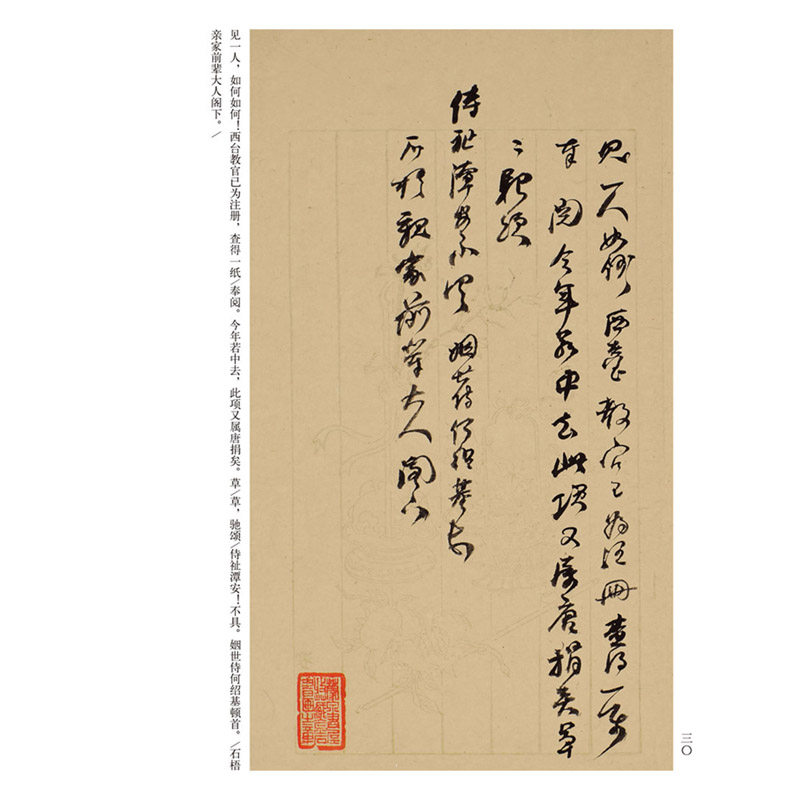 三〇
見一人如何〻西臺教官已為注冊查得一紙
奉閱今年若中去此項又屬唐捐矣草
〻馳頌
侍祉潭安不具 姻世侍何紹基頓首
石梧親家前輩大人閣下
见一人，如何如何！西台教官已为注册，查得一纸/奉阅。今年若中去，此项又属唐捐矣。草/草，驰颂/侍祉潭安！不具。 姻世侍何绍基顿首。/石梧
亲家前辈大人阁下。/